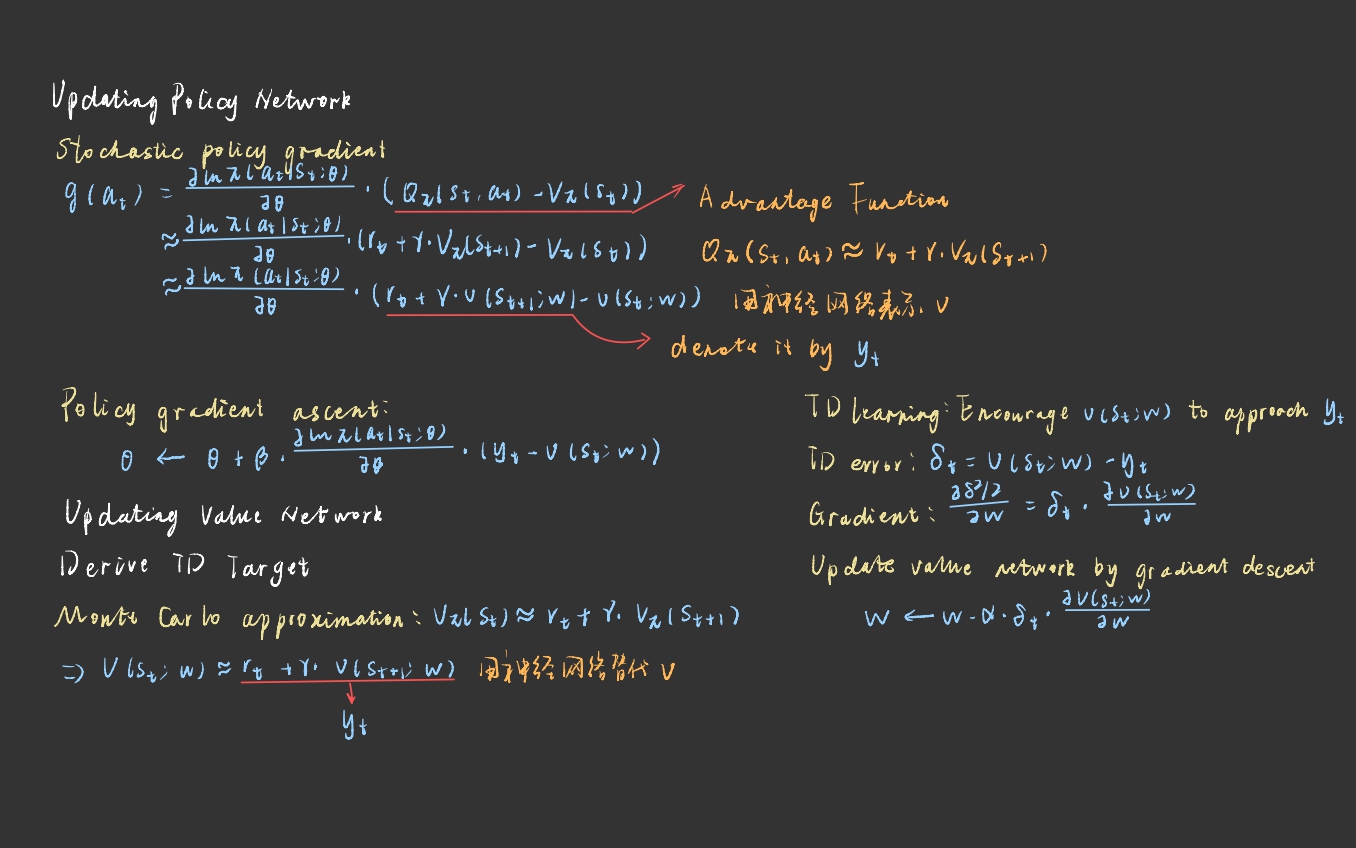 Updating Policy Network
Stochastic policy gradient
g(a_t) = ∂ln π(a_t|s_t;θ)/∂θ · (Q_π(s_t, a_t) - V_π(s_t)) Advantage Function
≈ ∂ln π(a_t|s_t;θ)/∂θ · (r_t + γ·V_π(s_{t+1}) - V_π(s_t)) Q_π(s_t, a_t) ≈ r_t + γ·V_π(s_{t+1})
≈ ∂ln π(a_t|s_t;θ)/∂θ · (r_t + γ·v(s_{t+1};w) - v(s_t;w)) 用神经网络表示 v
denote it by y_t
Policy gradient ascent:
θ ← θ + β · ∂ln π(a_t|s_t;θ)/∂θ · (y_t - v(s_t;w))
Updating Value Network
Derive TD Target
Monte Carlo approximation: V_π(s_t) ≈ r_t + γ· V_π(s_{t+1})
⇒ v(s_t; w) ≈ r_t + γ· v(s_{t+1}; w) 用神经网络替代 v
y_t
TD learning: Encourage v(s_t;w) to approach y_t
TD error: δ_t = v(s_t;w) - y_t
Gradient: ∂δ²/2/∂w = δ_t · ∂v(s_t;w)/∂w
Update value network by gradient descent
w ← w - α·δ_t · ∂v(s_t;w)/∂w